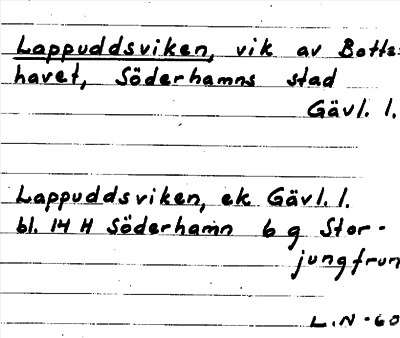 Lappuddsviken, vik av Botts-
havet, Söderhamns stad
Gävl. l.
Lappuddsviken, ek Gävl. l.
bl. 14 H Söderhamn 6 g Stor-
jungfrun
L.N-60